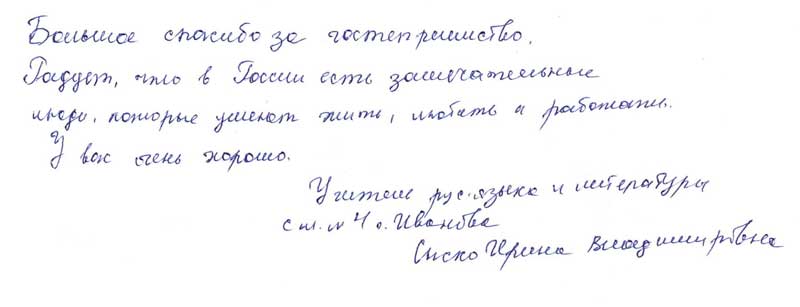 Большое спасибо за гостеприимство.
Радует, что в России есть замечательные
люди, которые умеют жить, любить и работать.
У вас очень хорошо.
Учитель рус. языка и литературы
№ 4 г. Иванова
Ирина Владимировна